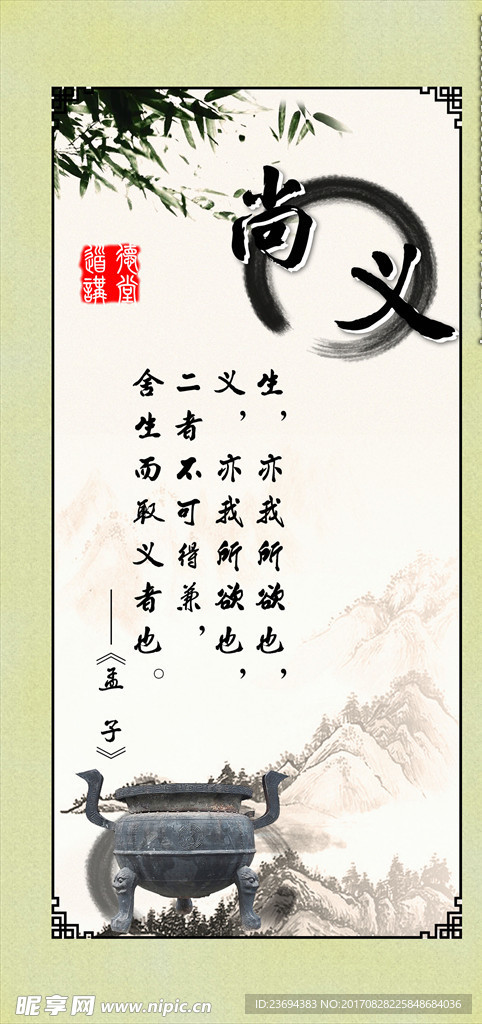 尚义
生，亦我所欲也，
义，亦我所欲也，
二者不可得兼，
舍生而取义者也。
——《孟子》
德堂
道講
昵享网 www.nipic.cn
ID:23694383 NO:20170828225848684036